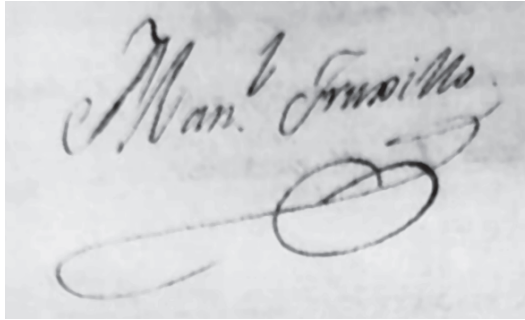 Man.l Truxillo